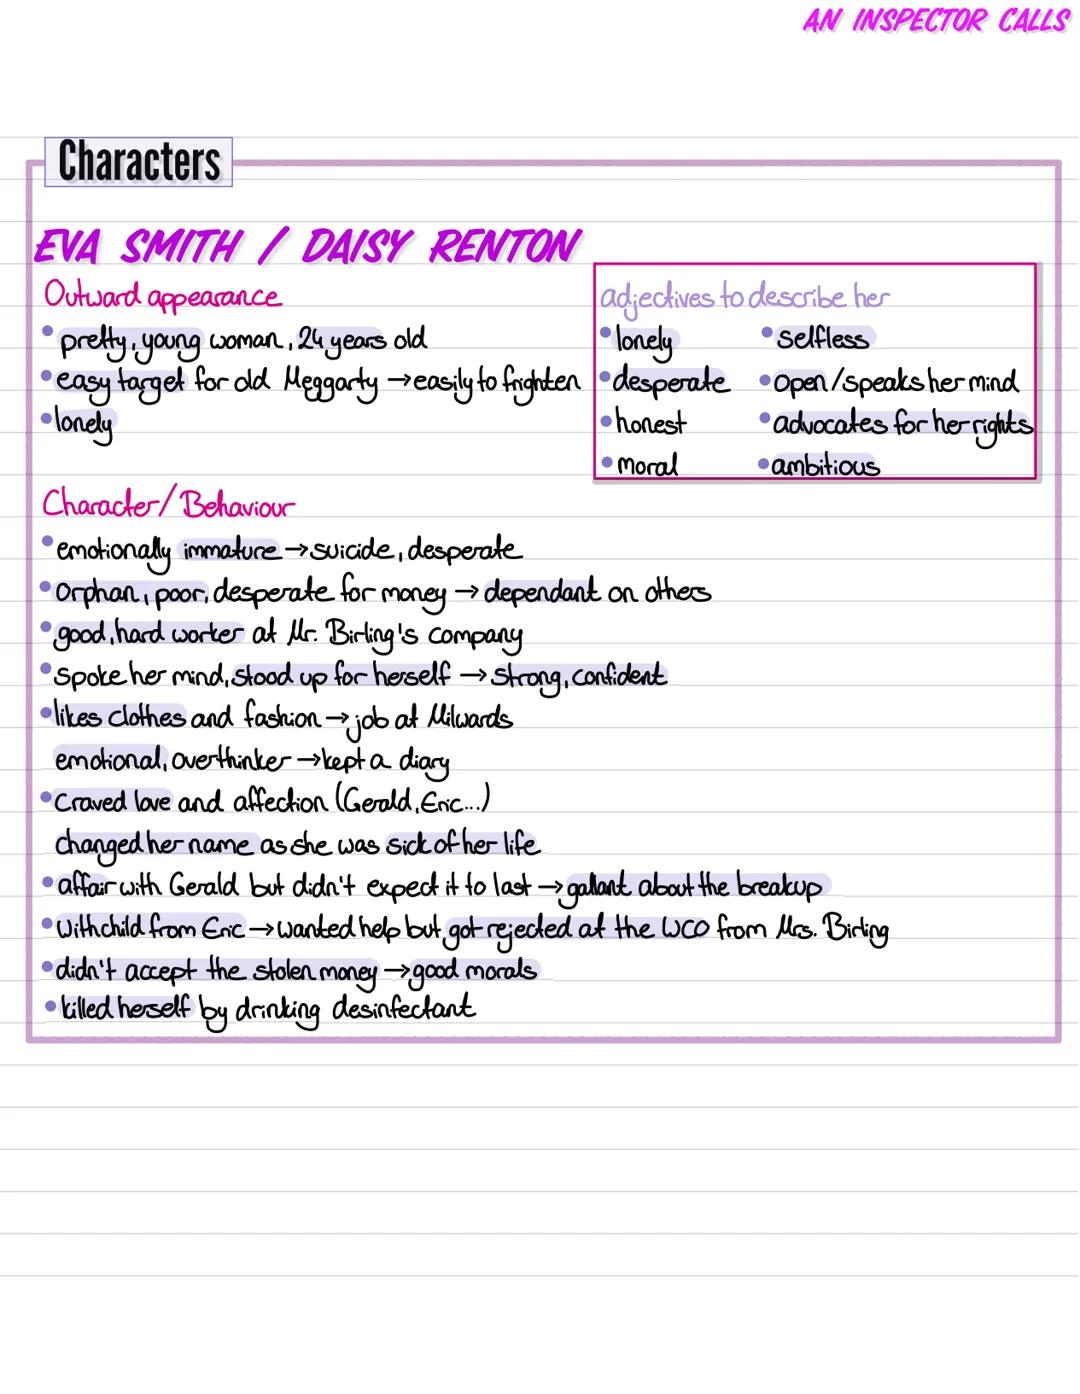 AN INSPECTOR CALLS
Characters
EVA SMITH / DAISY RENTON
Outward appearance
• pretty, young woman, 24 years old
• easy target for old Meggarty → easily to frighten
• lonely
adjectives to describe her
• lonely • selfless
• desperate • open/speaks her mind
• honest • advocates for her rights
• moral • ambitious
Character/Behaviour
• emotionally immature → suicide, desperate
• Orphan, poor, desperate for money → dependant on others
• good, hard worker at Mr. Birling's company
• spoke her mind, stood up for herself → strong, confident
• likes clothes and fashion → job at Milwards
emotional, overthinker → kept a diary
• Craved love and affection (Gerald, Eric...)
changed her name as she was sick of her life
• affair with Gerald but didn't expect it to last → gallant about the breakup
• With child from Eric → wanted help but got rejected at the WCO from Mrs. Birling
• didn't accept the stolen money → good morals
• killed herself by drinking desinfectant